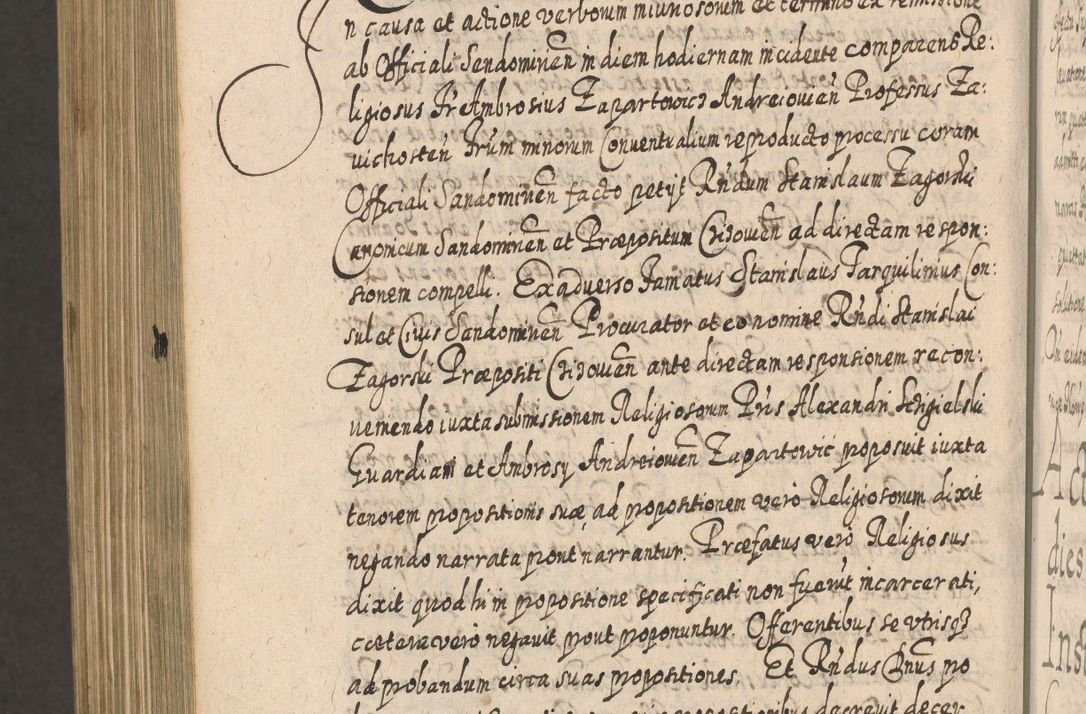 In causa et actione verborum iniuriosorum et termino ex remissione
ab Officiali Sendominien in diem hodiernam incidente comparens Re:
ligiosus Fr Ambrosius Zapartowicz Andreiovien Professus Za:
vichosten Frum minorum Conventualium reproducto processu coram
Officiali Sandomirien facto petijt Rndum Stanislaum Zagorski
Canonicum Sandomirien et Præpositum Chizovien ad directam respon:
sionem compelli. Exadverso Famatus Stanislaus Tarquilimus Con:
sul et Civis Sandomirien Procurator et eo nomine Rndi Stanislai
Zagorski Præpositi Chizovien ante directam responsionem recon:
veniendo iuxta submissionem Religiosorum Pris Alexandri Scigielski
Guardiani et Ambrosy Andreiovien Zapartowic proposuit iuxta
tenorem propositionis suæ, ad propositionem vero Religiosorum dixit
negando narrata prout narrantur. Præfatus vero Religiosus
dixit quod hi in propositione specificati non fuerut incarcerati,
cætera vero negavit prout proponuntur. Offerentibus se vtrisq3
ad probandum circa suas propositiones. Et Rndus Dnus pro
decrevit decer